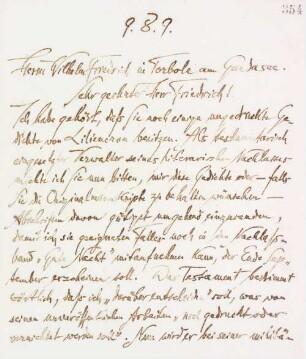 354
9.8.9.
Herrn Wilhelm Friedrich in Torbole am Gardasee.
Sehr geehrter Herr Friedrich!
Ich habe gehört, daß Sie noch einige ungedruckte Ge-
dichte von Liliencron besitzen. Als testamentarisch
eingesetzter Verwalter seines literarischen Nachlasses
möchte ich Sie nun bitten, mir diese Gedichte oder – falls
Sie die Originalmanuskripte zu behalten wünschen –
Abschriften davon gütigst umgehend einzusenden,
damit ich sie geeigneten Falles noch in den Nachlaß-
band „Gute Nacht" mitaufnehmen kann, der Ende Sep-
tember erscheinen soll. Das Testament bestimmt
wörtlich, daß ich „darüber entscheiden" soll, was von
seinen unveröffentlichten Arbeiten „noch gedruckt oder
vernichtet werden soll". Nun wird er bei seiner